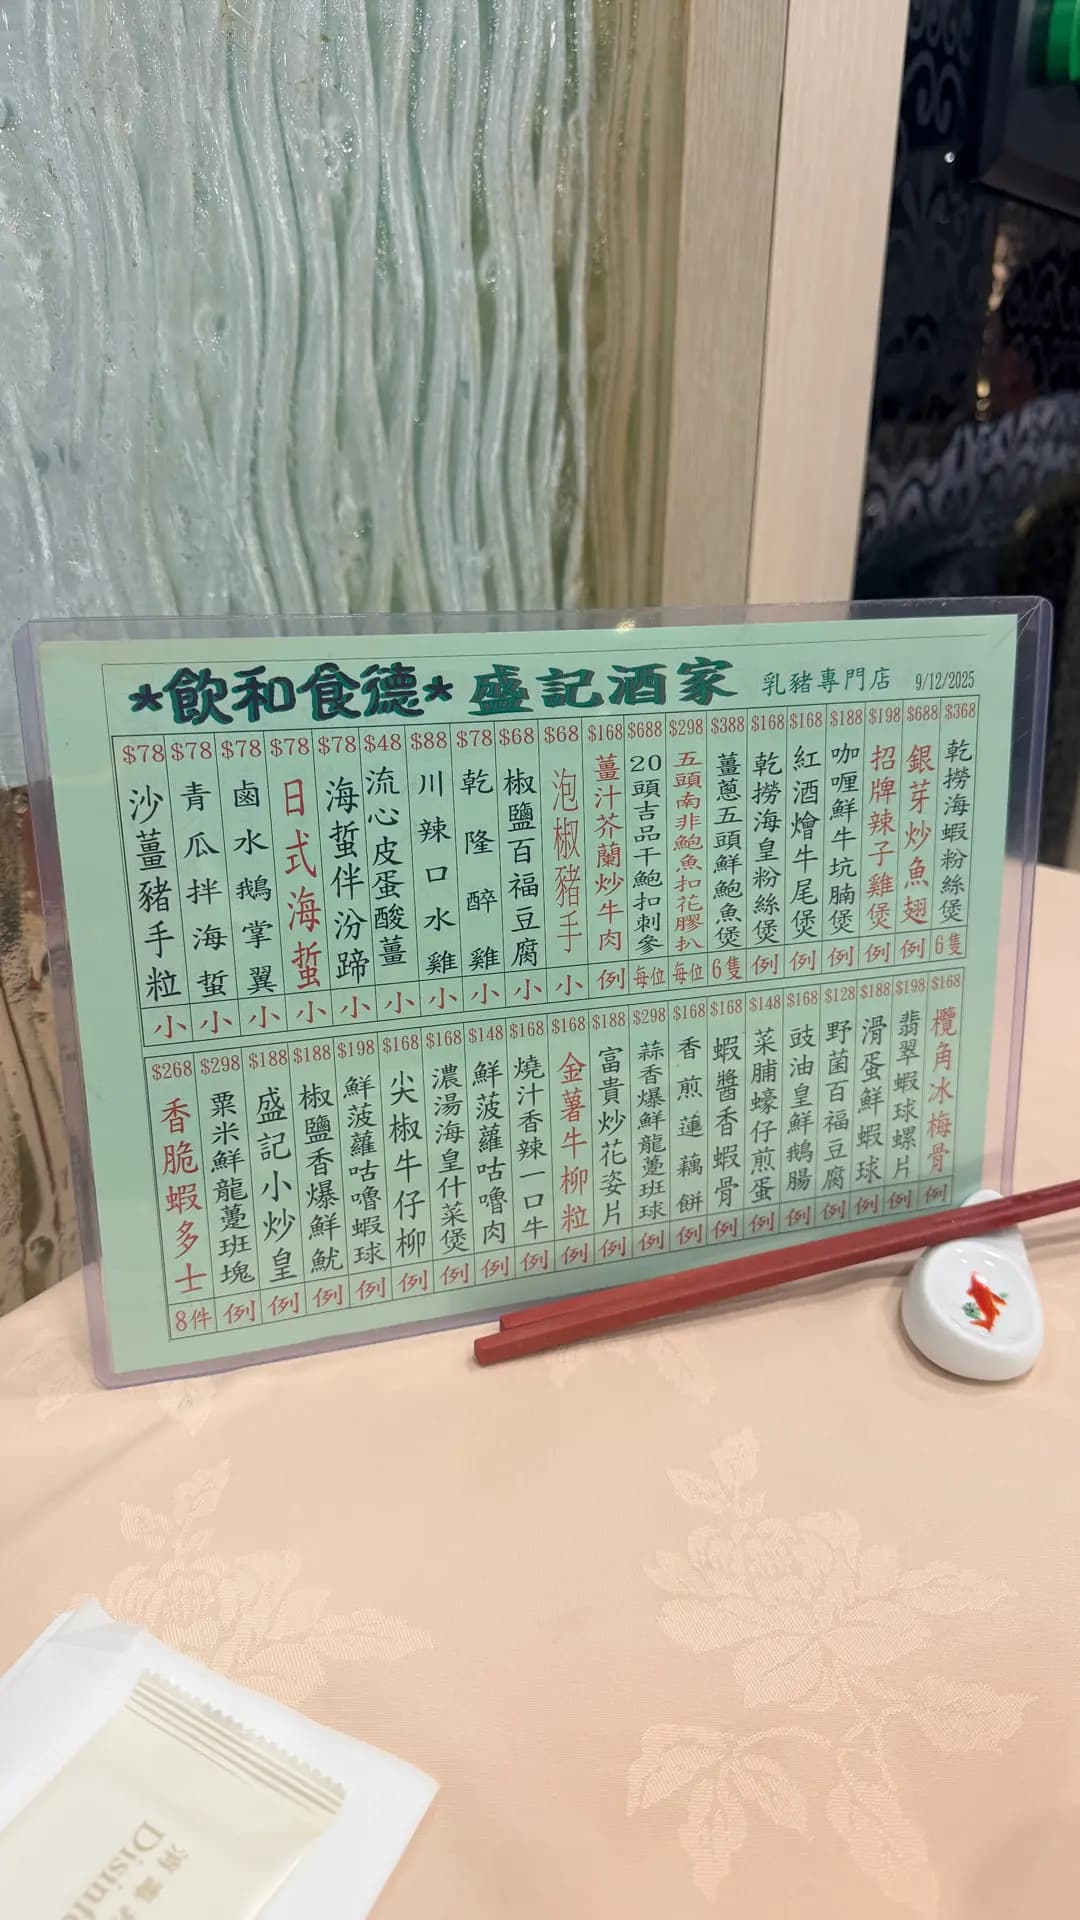 *飲和食德* 盛記酒家 乳豬專門店 9/12/2025
$368 乾撈海蝦粉絲煲 6隻
$688 銀芽炒魚翅 例
$198 招牌辣子雞煲 例
$188 咖喱鮮牛坑腩煲 例
$168 紅酒燴牛尾煲 例
$168 乾撈海皇粉絲煲 例
$388 薑蔥五頭鮮鮑魚煲 6隻
$298 五頭南非鮑魚扣花膠扒 每位
$688 20頭吉品干鮑扣刺參 每位
$168 薑汁芥蘭炒牛肉 例
$68 泡椒豬手 小
$68 椒鹽百福豆腐 小
$78 乾隆醉雞 小
$88 川辣口水雞 小
$48 流心皮蛋酸薑 小
$78 海蜇伴汾蹄 小
$78 日式海蜇 小
$78 鹵水鵝掌翼 小
$78 青瓜拌海蜇 小
$78 沙薑豬手粒 小
$168 欖角冰梅骨 例
$198 翡翠蝦球螺片 例
$188 滑蛋鮮蝦球 例
$128 野菌百福豆腐 例
$168 豉油皇鮮鵝腸 例
$148 菜脯蠔仔煎蛋 例
$168 蝦醬香蝦骨 例
$168 香煎蓮藕餅 例
$298 蒜香爆鮮龍躉班球 例
$188 富貴炒花姿片 例
$168 金薯牛柳粒 例
$168 燒汁香辣一口牛 例
$148 鮮菠蘿咕嚕肉 例
$168 濃湯海皇什菜煲 例
$168 尖椒牛仔柳 例
$198 鮮菠蘿咕嚕蝦球 例
$188 椒鹽香爆鮮魷 例
$188 盛記小炒皇 例
$298 粟米鮮龍躉班塊 例
$268 香脆蝦多士 8件
消毒
Disinfe